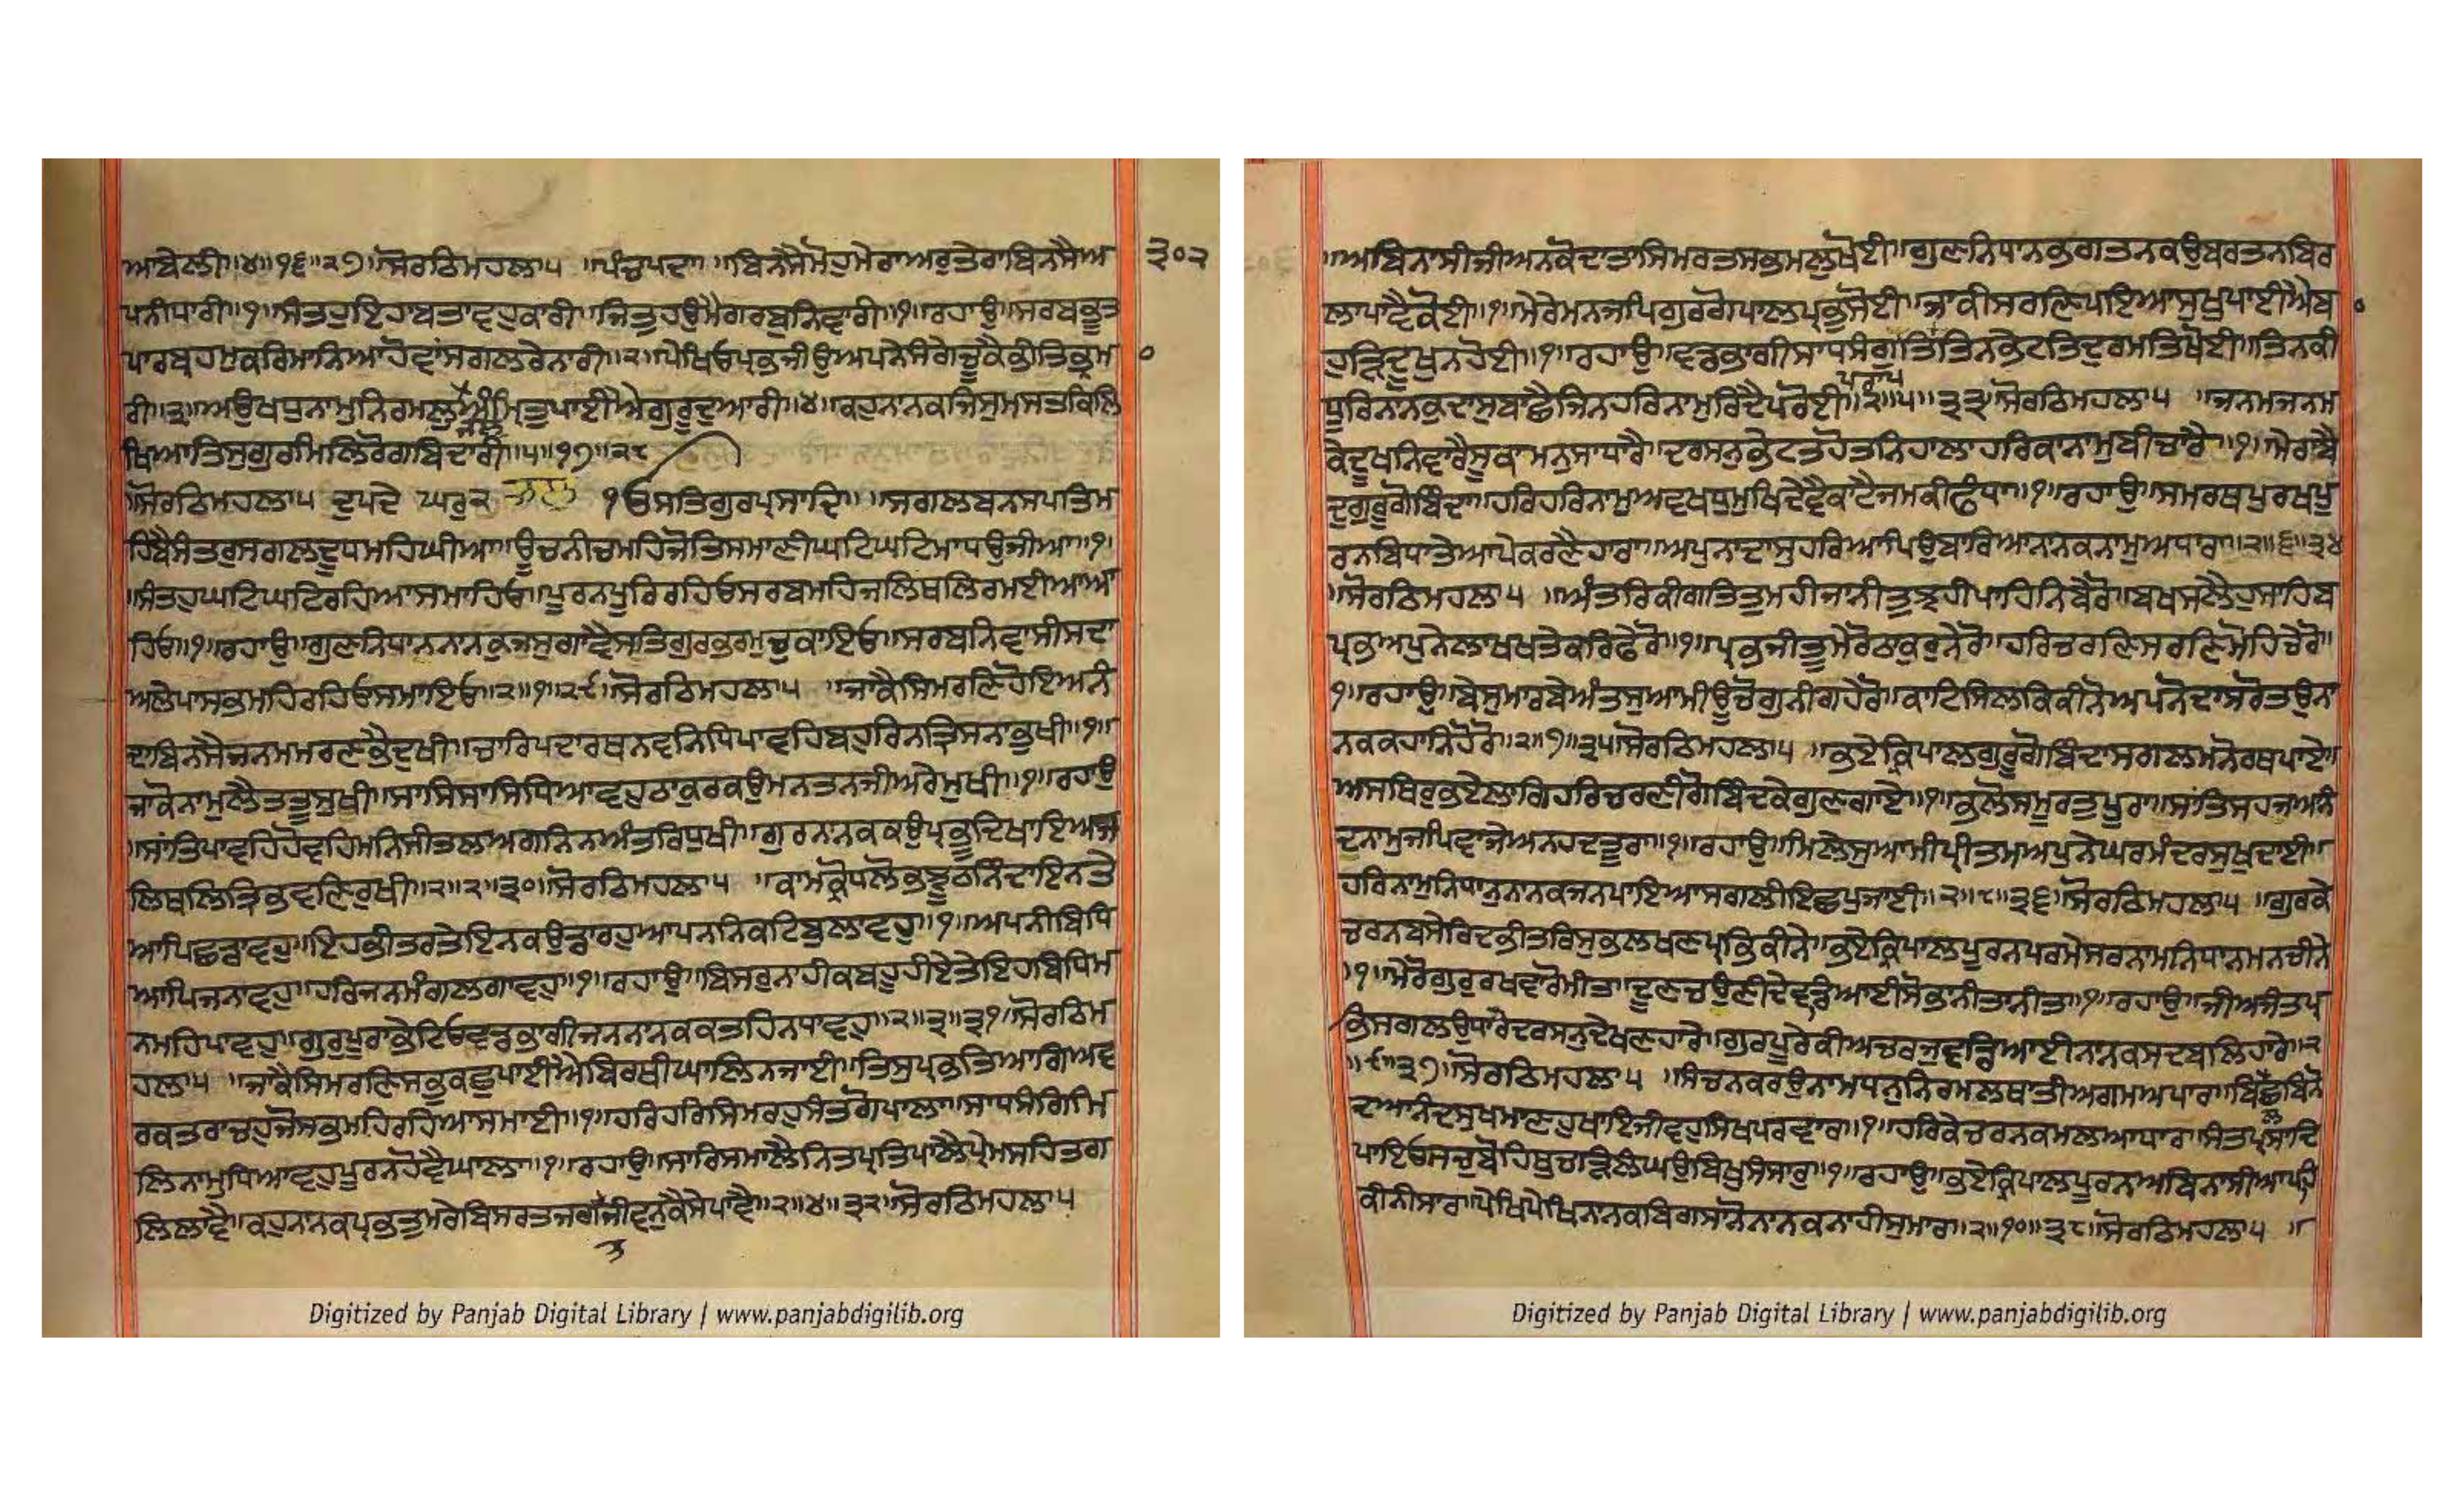 ਆਬੇਲੀ॥੪॥੧੬॥੨੭॥ਸੋਰਠਿਮਹਲਾ੫ ॥ਪੰਚਪਦਾ॥ ॥ਬਿਨਸੈਮੋਹੁਮੇਰਾਅਰੁਤੇਰਾਬਿਨਸੈਅ ੩੦੨
ਪਨੀਧਾਰੀ॥੧॥ਸੰਤਹੁਇਹਾਬਤਾਵਹੁਕਾਰੀ॥ਜਿਤੁਹਉਮੈਗਰਬੁਨਿਵਾਰੀ॥੧॥ਰਹਾਉ॥ਸਰਬਭੂਤ
ਪਾਰਬ੍ਰਹਮਕਰਿਮਾਨਿਆਹੋਵਾਂਸਗਲਰੇਨਾਰੀ॥੨॥ਪੇਖਿਓਪ੍ਰਭਜੀਉਅਪਨੈਸੰਗੇਚੂਕੈਭੀਤਿਭ੍ਰਮਾ
ਰੀ॥੩॥ਅਉਖਧੁਨਾਮੁਨਿਰਮਲੁਅੰਮ੍ਰਿਤੁਪਾਈਐਗੁਰੂਦੁਆਰੀ॥੪॥ਕਹੁਨਾਨਕਜਿਸੁਮਸਤਕਿਲਿ
ਖਿਆਤਿਸੁਗੁਰਮਿਲਿਰੋਗਬਿਦਾਰੀ॥੫॥੧੭॥੨੮
ਸੋਰਠਿਮਹਲਾ੫ ਦੁਪਦੇ ਘਰੁ੨ ੧ਓਸਤਿਗੁਰਪ੍ਰਸਾਦਿ॥ ॥ਸਗਲਬਨਸਪਤਿਮ
ਹਿਬੈਸੰਤਰੁਸਗਲਦੂਧਮਹਿਘੀਆ॥ਊਚਨੀਚਮਹਿਜੋਤਿਸਮਾਣੀਘਟਿਘਟਿਮਾਧਉਜੀਆ॥੧॥
ਸੰਤਹੁਘਟਿਘਟਿਰਹਿਆਸਮਾਹਿਓ॥ਪੂਰਨਪੂਰਿਰਹਿਓਸਰਬਮਹਿਜਲਿਥਲਿਰਮਈਆਆ
ਹਿਓ॥੧॥ਰਹਾਉ॥ਗੁਣਨਿਧਾਨਨਾਨਕੁਜਸੁਗਾਵੈਸਤਿਗੁਰਭਰਮੁਚੁਕਾਇਓ॥ਸਰਬਨਿਵਾਸੀਸਦਾ
ਅਲੇਪਾਸਭਮਹਿਰਹਿਓਸਮਾਇਓ॥੨॥੧॥੨੯॥ਸੋਰਠਿਮਹਲਾ੫ ॥ਜਾਕੈਸਿਮਰਣਿਹੋਇਅਨੰ
ਦਾਬਿਨਸੈਜਨਮਮਰਣਭੈਦੁਖੀ॥ਚਾਰਿਪਦਾਰਥਨਵਨਿਧਿਪਾਵਹਿਬਹੁਰਿਨਤ੍ਰਿਸਨਾਭੁਖੀ॥੧॥
ਜਾਕੋਨਾਮੁਲੈਤਤੂਸੁਖੀ॥ਸਾਸਿਸਾਸਿਧਿਆਵਹੁਠਾਕੁਰਕਉਮਨਤਨਜੀਅਰੇਮੁਖੀ॥੧॥ਰਹਾਉ
॥ਸਾਂਤਿਪਾਵਹਿਹੋਵਹਿਮਨਿਸੀਤਲਅਗਨਿਨਅੰਤਰਿਧੁਖੀ॥ਗੁਰਨਾਨਕਕਉਪ੍ਰਭੂਦਿਖਾਇਆਜ
ਲਿਥਲਿਤ੍ਰਿਭਵਣਿਰੁਖੀ॥੨॥੨॥੩੦॥ਸੋਰਠਿਮਹਲਾ੫ ॥ਕਾਮਕ੍ਰੋਧਲੋਭਝੂਠਨਿੰਦਾਇਨਤੇ
ਆਪਿਛਡਾਵਹੁ॥ਇਹਭੀਤਰਤੇਇਨਕਉਡਾਰਹੁਆਪਨਨਿਕਟਿਬੁਲਾਵਹੁ॥੧॥ਅਪਨੀਬਿਧਿ
ਆਪਿਜਨਾਵਹੁ॥ਹਰਿਜਨਮੰਗਲਗਾਵਹੁ॥੧॥ਰਹਾਉ॥ਬਿਸਰੁਨਾਹੀਕਬਹੂਹੀਏਤੇਇਹਬਿਧਿਮ
ਨਮਹਿਪਾਵਹੁ॥ਗੁਰੁਪੂਰਾਭੇਟਿਓਵਡਭਾਗੀਜਨਨਾਨਕਕਤਹਿਨਧਾਵਹੁ॥੨॥੩॥੩੧॥ਸੋਰਠਿਮ
ਹਲਾ੫ ॥ਜਾਕੈਸਿਮਰਣਿਸਭੁਕਛੁਪਾਈਐਬਿਰਥੀਘਾਲਿਨਜਾਈ॥ਤਿਸੁਪ੍ਰਭਤਿਆਗਿਅਵ
ਰਕਤਰਾਚਹੁਜੋਸਭਮਹਿਰਹਿਆਸਮਾਈ॥੧॥ਹਰਿਹਰਿਸਿਮਰਹੁਸੰਤਗੋਪਾਲਾ॥ਸਾਧਸੰਗਿਮਿ
ਲਿਨਾਮੁਧਿਆਵਹੁਪੂਰਨਹੋਵੈਘਾਲਾ॥੧॥ਰਹਾਉ॥ਸਾਰਿਸਮਾਲੈਨਿਤਪ੍ਰਤਿਪਾਲੈਪ੍ਰੇਮਸਹਿਤਗ
ਲਿਲਾਵੈ॥ਕਹੁਨਾਨਕਪ੍ਰਭਤੁਮਰੇਬਿਸਰਤਜਗਜੀਵਨੁਕੈਸੇਪਾਵੈ॥੨॥੪॥੩੨॥ਸੋਰਠਿਮਹਲਾ੫
ਤ
Digitized by Panjab Digital Library | www.panjabdigilib.org
॥ਅਬਿਨਾਸੀਜੀਅਨਕੋਦਾਤਾਸਿਮਰਤਸਭਮਲੁਖੋਈ॥ਗੁਣਨਿਧਾਨਭਗਤਨਕਉਬਰਤਨਬਿਰ
ਲਾਪਾਵੈਕੋਈ॥੧॥ਮੇਰੇਮਨਜਪਿਗੁਰਗੋਪਾਲਪ੍ਰਭੁਸੋਈ॥ਜਾਕੀਸਰਣਿਪਇਆਸੁਖੁਪਾਈਐਬ
ਹੁੜਿਦੂਖੁਨਹੋਈ॥੧॥ਰਹਾਉ॥ਵਡਭਾਗੀਸਾਧਸੰਗੁਪਰਾਪਤਿਤਿਨਭੇਟਤਿਦੁਰਮਤਿਖੋਈ॥ਤਿਨਕੀ
ਧੂਰਿਨਾਨਕੁਦਾਸੁਬਾਛੈਜਿਨਹਰਿਨਾਮੁਰਿਦੈਪਰੋਈ॥੨॥੫॥੩੩॥ਸੋਰਠਿਮਹਲਾ੫ ॥ਜਨਮਜਨਮ
ਕੇਦੂਖਨਿਵਾਰੈਸੂਕਾਮਨੁਸਾਧਾਰੈ॥ਦਰਸਨੁਭੇਟਤਹੋਤਨਿਹਾਲਾਹਰਿਕਾਨਾਮੁਬੀਚਾਰੈ॥੧॥ਮੇਰਾਬੈ
ਦੁਗੁਰੂਗੋਬਿੰਦਾ॥ਹਰਿਹਰਿਨਾਮੁਅਵਖਧੁਮੁਖਿਦੇਵੈਕਾਟੈਜਮਕੀਫੰਧਾ॥੧॥ਰਹਾਉ॥ਸਮਰਥਪੁਰਖਪੂ
ਰਨਬਿਧਾਤੇਆਪੇਕਰਣੈਹਾਰਾ॥ਅਪੁਨਾਦਾਸੁਹਰਿਆਪਿਉਬਾਰਿਆਨਾਨਕਨਾਮੁਅਧਾਰਾ॥੨॥੬॥੩੪
॥ਸੋਰਠਿਮਹਲਾ੫ ॥ਅੰਤਰਿਕੀਗਤਿਤੁਮਹੀਜਾਨੀਤੁਝਹੀਪਾਹਿਨਿਬੇਰੋ॥ਬਖਸਲੈਹੁਸਾਹਿਬ
ਪ੍ਰਭਅਪੁਨੇਲਾਖਖਤੇਕਰਿਫੇਰੋ॥੧॥ਪ੍ਰਭਜੀਤੂਮੇਰੋਠਾਕੁਰੁਨੇਰੋ॥ਹਰਿਚਰਣਿਸਰਣਿਮੋਹਿਚੇਰੋ॥
੧॥ਰਹਾਉ॥ਬੇਸੁਮਾਰਬੇਅੰਤਸੁਆਮੀਊਚੋਗੁਨੀਗਹੇਰੋ॥ਕਾਟਿਸਿਲਕਿਕੀਨੋਅਪਨੋਦਾਸਰੋਤਉਨਾ
ਨਕਕਹਾਨਿਹੋਰੋ॥੨॥੭॥੩੫॥ਸੋਰਠਿਮਹਲਾ੫ ॥ਭਏਕ੍ਰਿਪਾਲਗੁਰੂਗੋਬਿੰਦਾਸਗਲਮਨੋਰਥਪਾਏ॥
ਅਸਥਿਰਭਏਲਾਗਿਹਰਿਚਰਣੀਗੋਬਿੰਦਕੇਗੁਣਗਾਏ॥੧॥ਭਲੋਸਮੂਰਤੁਪੂਰਾ॥ਸਾਂਤਿਸਹਜਆਨੰ
ਦਨਾਮੁਜਪਿਵਾਜੇਅਨਹਦਤੂਰਾ॥੧॥ਰਹਾਉ॥ਮਿਲੇਸੁਆਮੀਪ੍ਰੀਤਮਅਪੁਨੇਘਰਮੰਦਰਸੁਖਦਾਈ॥
ਹਰਿਨਾਮੁਨਿਧਾਨੁਨਾਨਕਜਨਪਾਇਆਸਗਲੀਇਛਪੁਜਾਈ॥੨॥੮॥੩੬॥ਸੋਰਠਿਮਹਲਾ੫ ॥ਗੁਰਕੇ
ਚਰਨਬਸੇਰਿਦਭੀਤਰਿਸੁਭਲਖਣਪ੍ਰਭਿਕੀਨੇ॥ਭਏਕ੍ਰਿਪਾਲਪੂਰਨਪਰਮੇਸਰਨਾਮਨਿਧਾਨਮਨਚੀਨੇ
॥੧॥ਮੇਰੋਗੁਰੁਰਖਵਾਰੋਮੀਤਾ॥ਦੂਣਚਊਣੀਦੇਵਡਿਆਈਸੋਭਾਨੀਤਾਨੀਤਾ॥੧॥ਰਹਾਉ॥ਜੀਅਜੰਤਪ੍ਰ
ਭਿਸਗਲਉਧਾਰੇਦਰਸਨੁਦੇਖਣਹਾਰੇ॥ਗੁਰਪੂਰੇਕੀਅਚਰਜੁਵਡਿਆਈਨਾਨਕਸਦਬਲਿਹਾਰੇ॥੨
॥੯॥੩੭॥ਸੋਰਠਿਮਹਲਾ੫ ॥ਸੰਚਨਕਰਉਨਾਮਧਨੁਨਿਰਮਲਥਾਤੀਅਗਮਅਪਾਰਾ॥ਬਿਲਛਿਬਿਨੋ
ਦਆਨੰਦਸੁਖਮਾਣਹੁਖਾਇਜੀਵਹੁਸਿਖਪਰਵਾਰਾ॥੧॥ਹਰਿਕੇਚਰਨਕਮਲਆਧਾਰਾ॥ਸੰਤਪ੍ਰਸਾਦਿ
ਪਾਇਓਸਚੁਬੋਹਿਥੁਚੜਿਲੰਘਉਬਿਖੁਸੰਸਾਰੁ॥੧॥ਰਹਾਉ॥ਭਏਕ੍ਰਿਪਾਲਪੂਰਨਅਬਿਨਾਸੀਆਪਹਿ
ਕੀਨੀਸਾਰਾ॥ਪੇਖਿਪੇਖਿਨਾਨਕਬਿਗਸਾਨੋਨਾਨਕਨਾਹੀਸੁਮਾਰਾ॥੨॥੧੦॥੩੮॥ਸੋਰਠਿਮਹਲਾ੫ ॥
Digitized by Panjab Digital Library | www.panjabdigilib.org